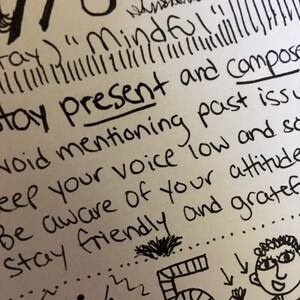 tay) "Mindful"
tay present and compos
void mentioning past issu
eep your voice low and so
Be aware of your attitude
Stay friendly and gratef
5